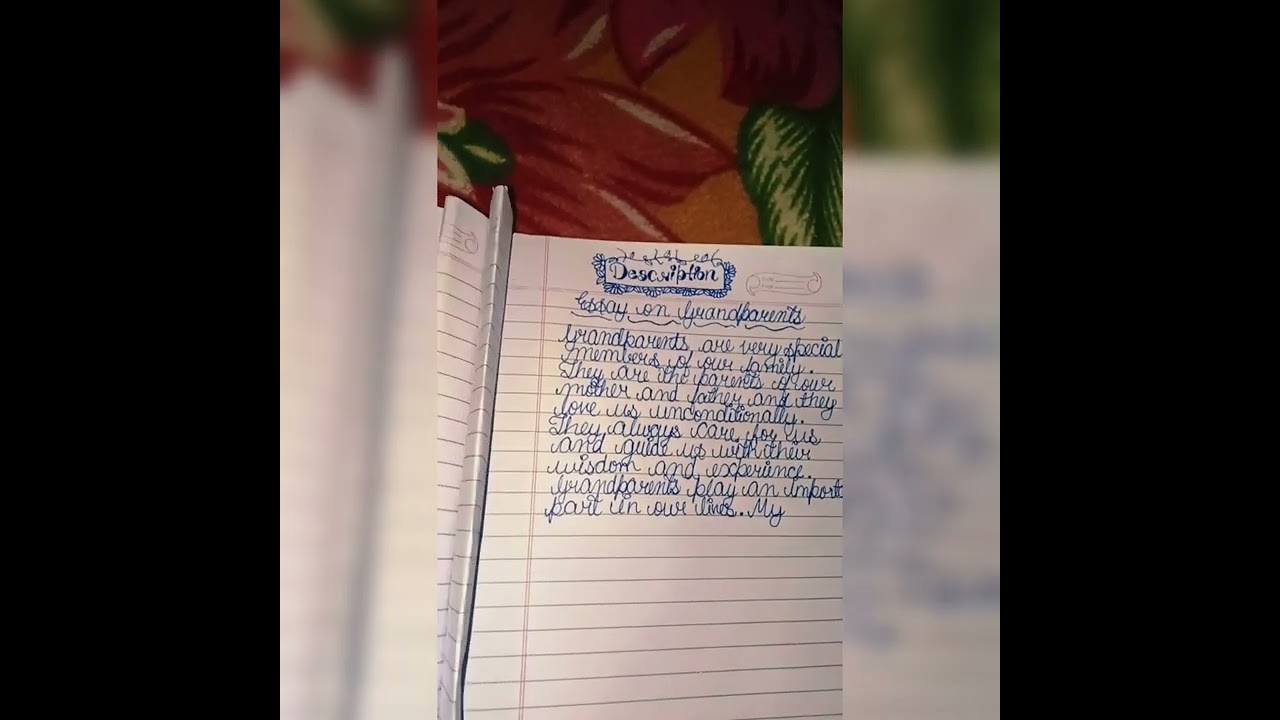 Description
Essay on Grandparents
Grandparents are very special
members of our family.
They are the parents of our
mother and father and they
love us unconditionally.
They always care for us
and guide us with their
wisdom and experience.
Grandparents play an importa
part in our lives. My